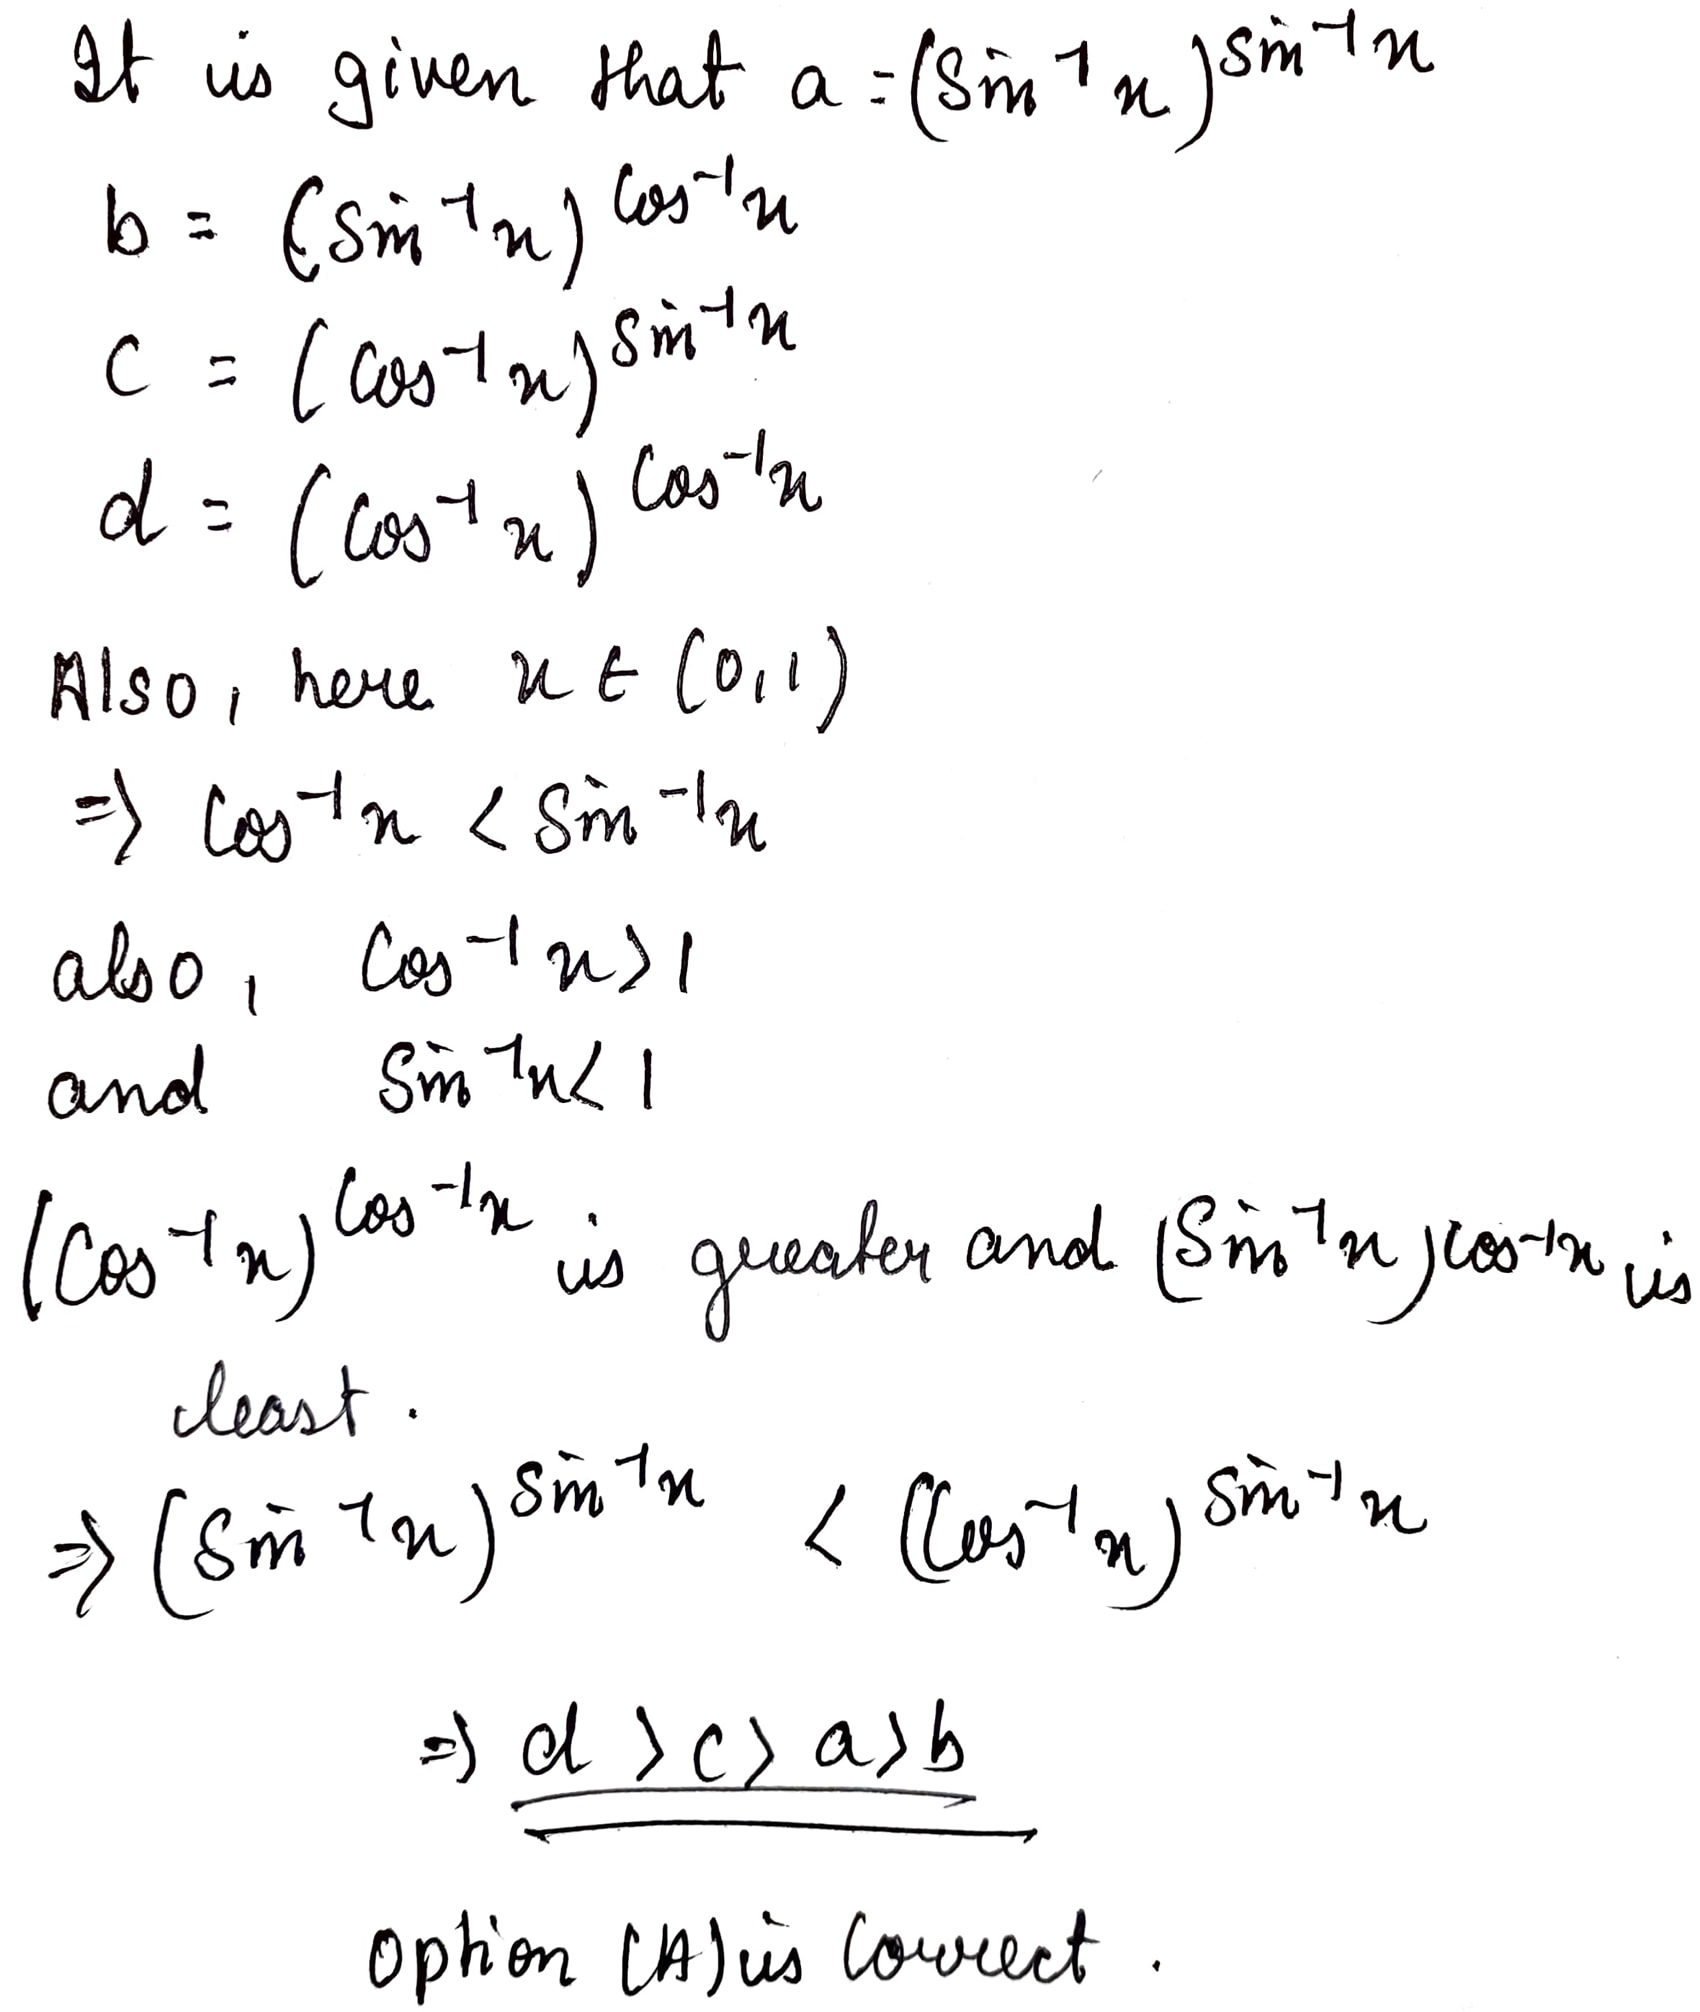 It is given that a = (Sin⁻¹x)^Sin⁻¹x
b = (Sin⁻¹x)^Cos⁻¹x
c = (Cos⁻¹x)^Sin⁻¹x
d = (Cos⁻¹x)^Cos⁻¹x
Also, here x ∈ (0,1)
⇒ Cos⁻¹x < Sin⁻¹x
also, Cos⁻¹x > 1
and Sin⁻¹x < 1
(Cos⁻¹x)^Cos⁻¹x is greater and (Sin⁻¹x)^Cos⁻¹x is
least.
⇒ (Sin⁻¹x)^Sin⁻¹x < (Cos⁻¹x)^Sin⁻¹x
⇒ d > c > a > b
Option (A) is Correct.